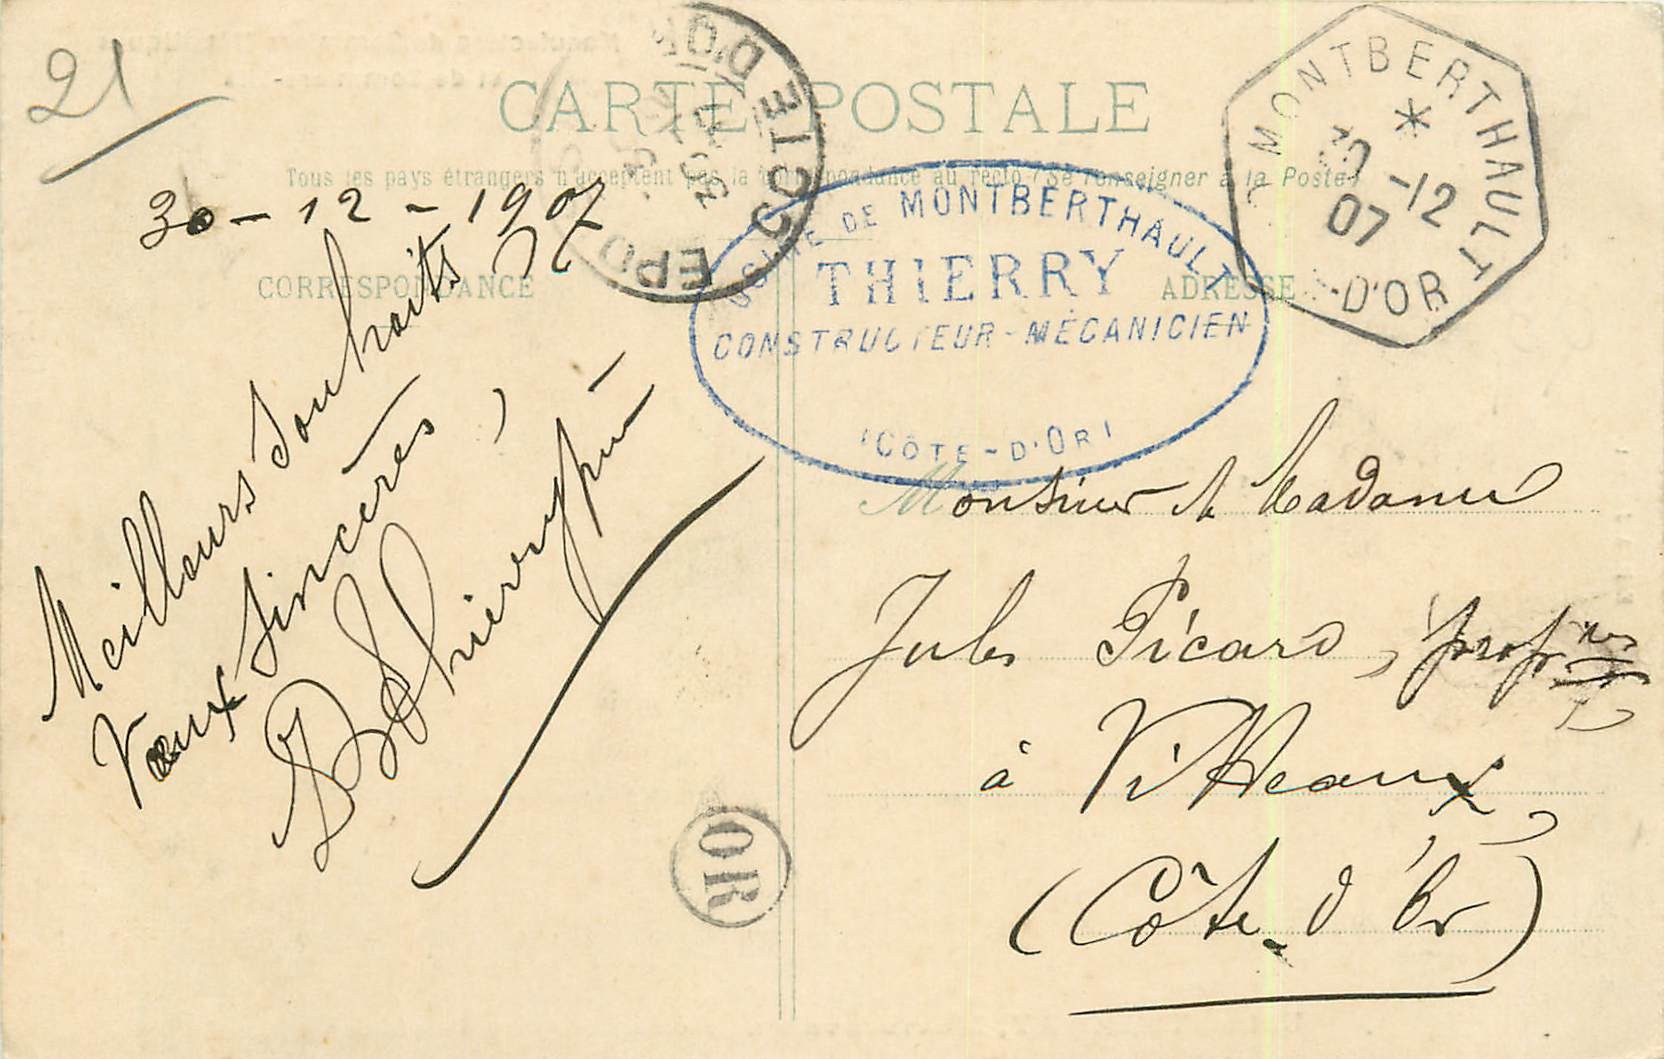 21
CARTE POSTALE
Tous les pays étrangers n'acceptent pas la correspondance au recto (Se renseigner à la Poste)
30-12-1907
CORRESPONDANCE
ADRESSE
COTE D'OR
EPO
MONTBERTHAULT
*
30 -12
07
-D'OR
DE MONTBERTHAULT
THIERRY
CONSTRUCTEUR-MÉCANICIEN
(CÔTE-D'OR)
Meilleurs souhaits
Vœux sincères,
Thierry père
OR
Monsieur & Madame
Jules Picard, propres
à Vitteaux,
(Côte-d'Or)